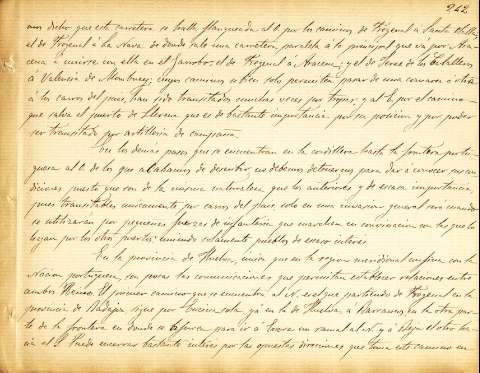 242
mos dicho que esta carretera se halla flanqueada al O. por los caminos de Fregenal á Santa Olalla;
el de Fregenal á la Nava de donde sale una carretera, paralela á la principal que va por Aracena
á unirse con ella en el Garrobo; el de Fregenal á Aracena; y el de Jerez de los Caballeros
á Valencia de Mombuey; cuyos caminos si bien solo permiten pasar de una comarca á otra
á los carros del pais, han sido transitados muchas veces por tropas; y al E. por el camino
que salva el puerto de Llerena que es de bastante importancia por su posicion y por poder
ser transitado por artilleria de campaña.
En los demás pasos que se encuentran en la cordillera hasta la frontera portuguesa
al O. de los que acabamos de describir, no debemos detenernos para dar á conocer sus condiciones
puesto que son de la misma naturaleza que los anteriores y de escasa importancia,
pues transitables unicamente por carros del pais, solo en una invasion general son cuando
se utilizarán por pequeñas fuerzas de infanteria que marchen en convinacion con las que lo
hagan por los otros puertos; uniendo solamente pueblos de escaso interés.
En la provincia de Huelva, unica que en la region meridional confina con la
Nacion portuguesa, son pocas las comunicaciones que permitan establecer relaciones entre
ambos Reinos. El primer camino que se encuentra al N. es el que partiendo de Fregenal en la
provincia de Badajoz sigue por Encinasola ya en la de Huelva, á Barrancos en la otra parte
de la frontera en donde se bifurca para ir á Moura un ramal al N. y á Beja el otro hacia
el S. Puede encerrar bastante interés por las opuestas direcciones que toma este camino en